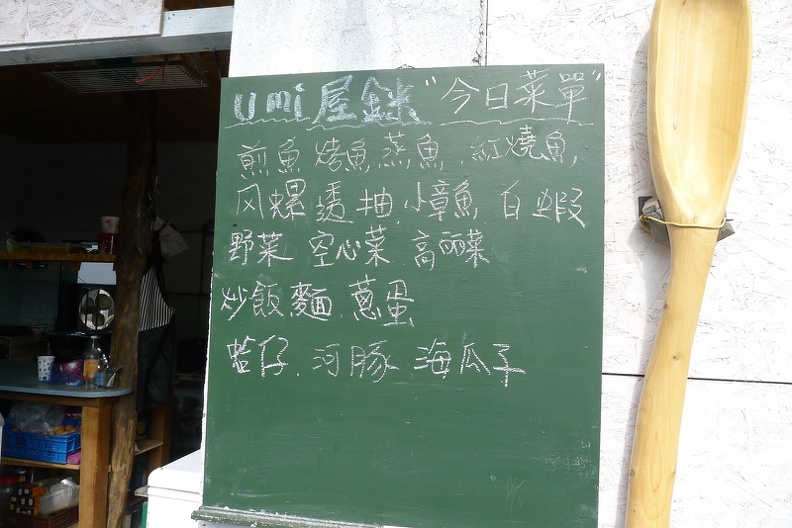 umi 屋鉢 "今日菜單"
煎魚 烤魚,蒸魚.紅燒魚,
风螺 透抽,小章魚 白蝦
野菜 空心菜.高丽菜
炒飯,麵.蔥蛋
蛤仔.河豚 海瓜子